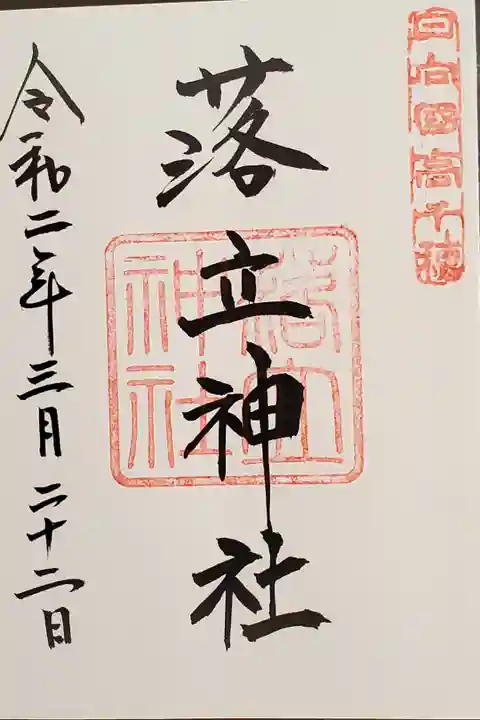 日向国高千穂
落立神社
落立神社
令和二年三月二十二日